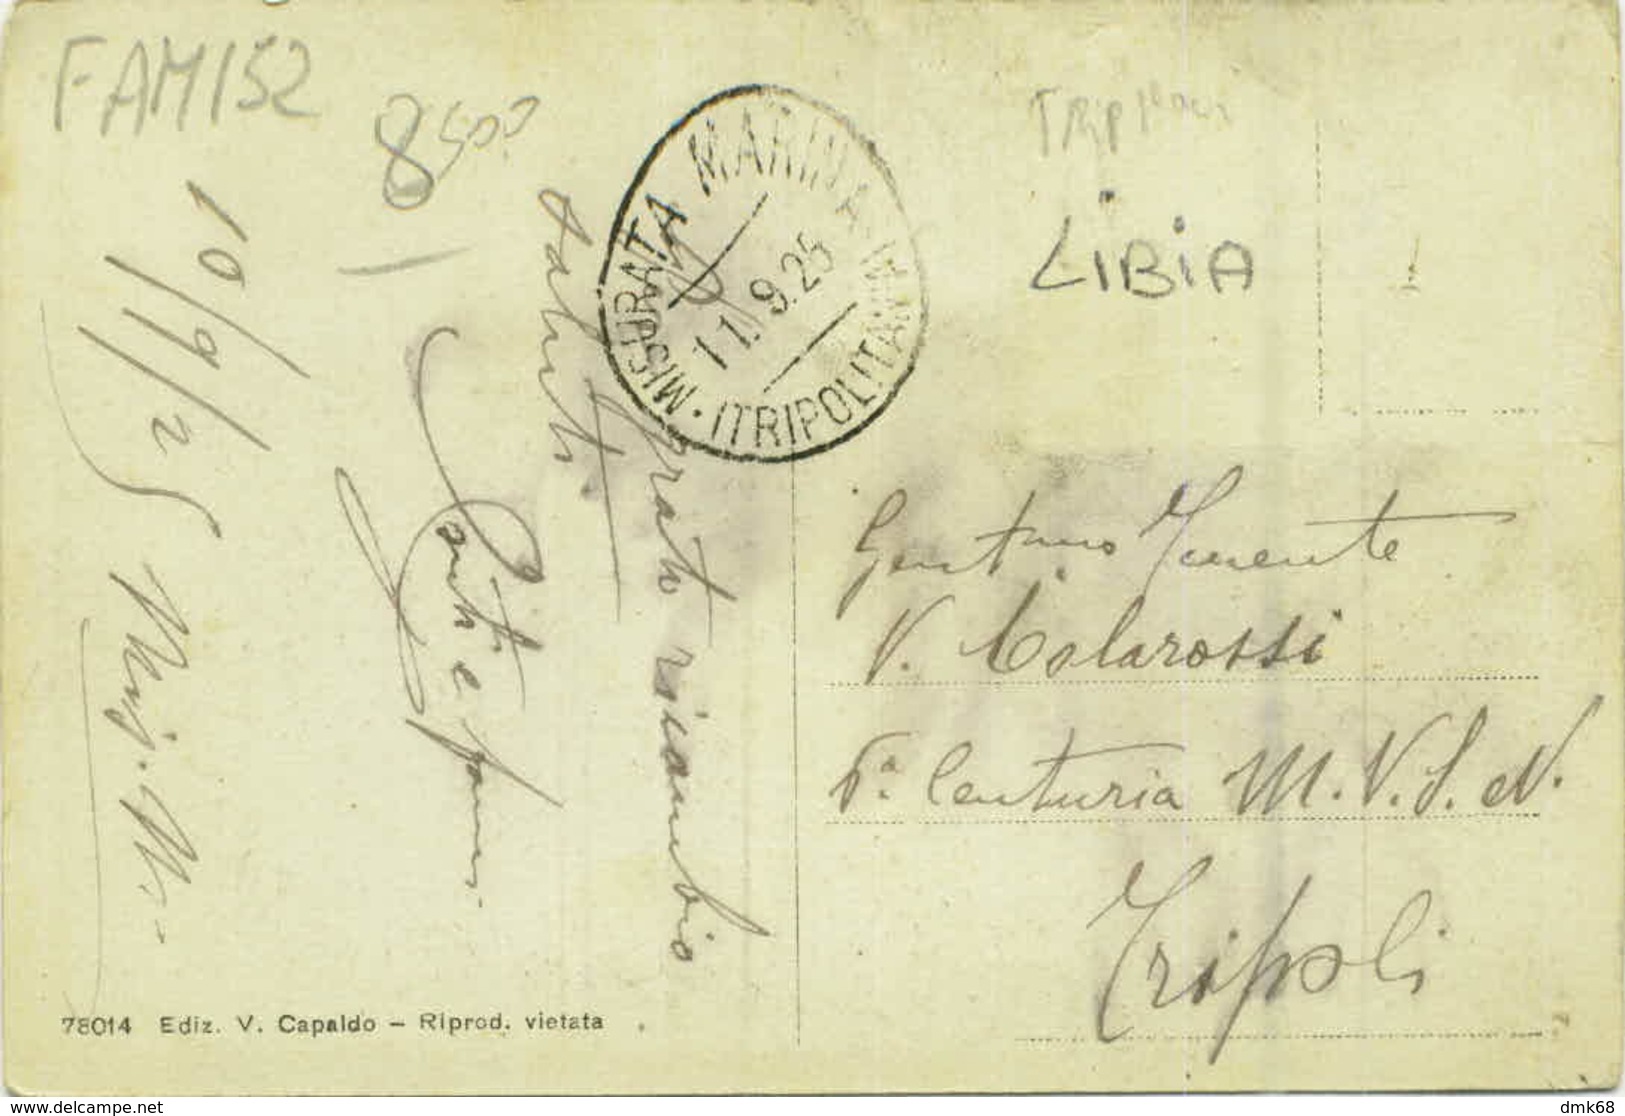 FAM152
8500
10/9/25 Mis. M.
Grato ricambio
saluti
MISURATA MARINA
11.9.25
(TRIPOLITANIA)
Tripoli
LIBIA
Tenente
V. Colarossi
Centuria M.V.S.N.
Tripoli
78014 Ediz. V. Capaldo – Riprod. vietata
www.delcampe.net
dmk68